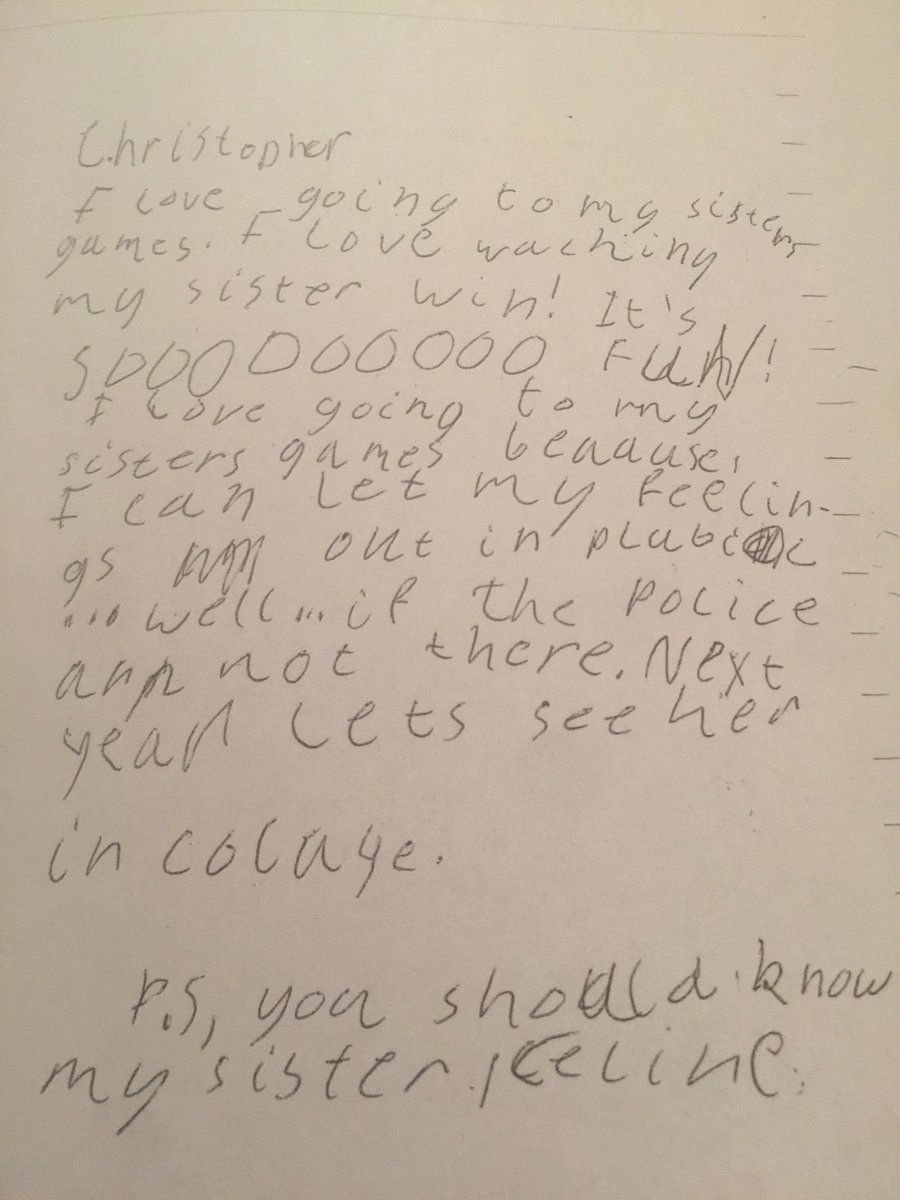 Christopher
I love going to my sisters
games. I love waching
my sister win! It's
SOOOOOOOOO FUN!
I love going to my
sisters games beaause,
I can let my feelin-
gs out in plubic
...well...if the police
are not there. Next
year lets see her
in colage.
P.S, you should know
my sister, Keeline.